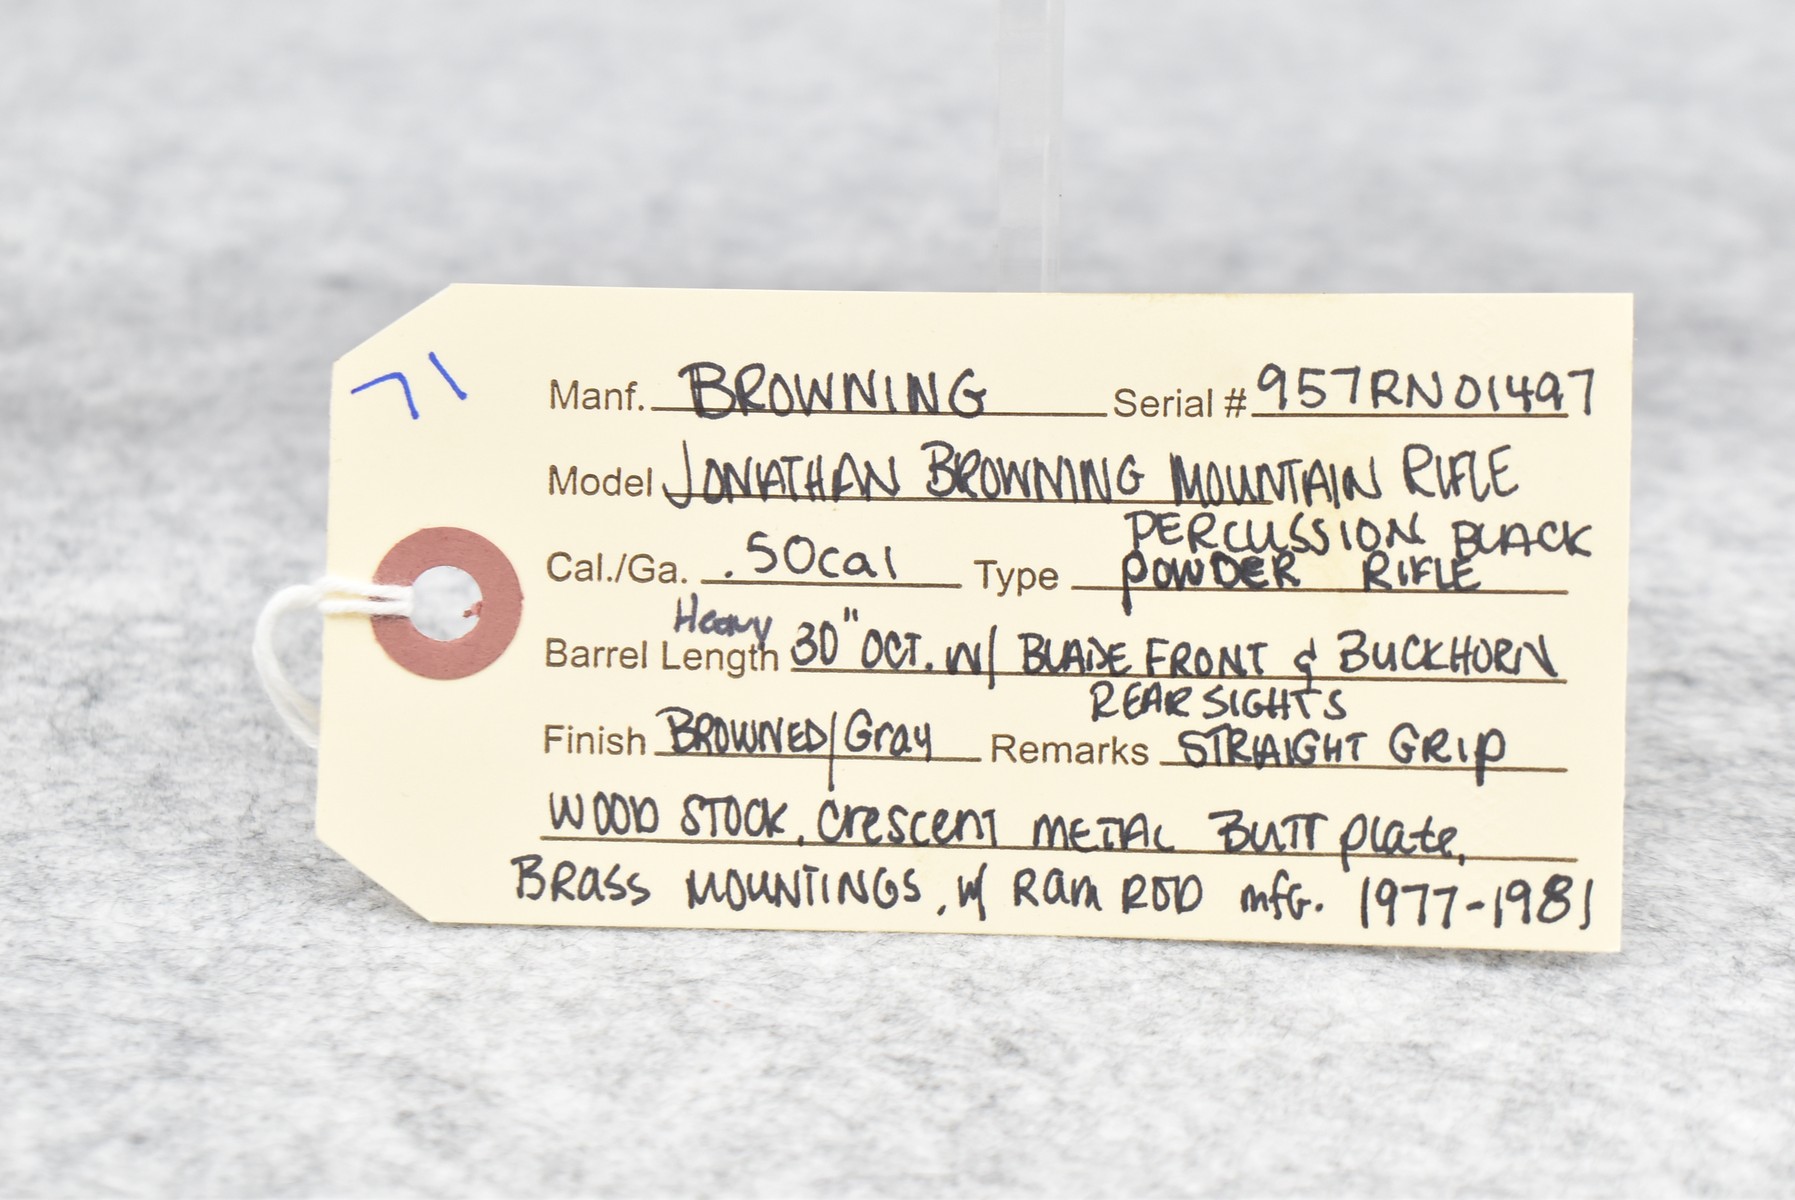 71
Manf. BROWNING Serial # 957RN01497
Model JONATHAN BROWNING MOUNTAIN RIFLE
PERCUSSION BLACK
Cal./Ga. .50cal Type POWDER RIFLE
Heavy
Barrel Length 30" OCT. W/ BLADE FRONT & BUCKHORN
REAR SIGHTS
Finish BROWNED/Gray Remarks STRAIGHT GRIP
WOOD STOCK, Crescent METAL BUTT plate,
BRASS MOUNTINGS, W/ RAM ROD mfG. 1977-1981